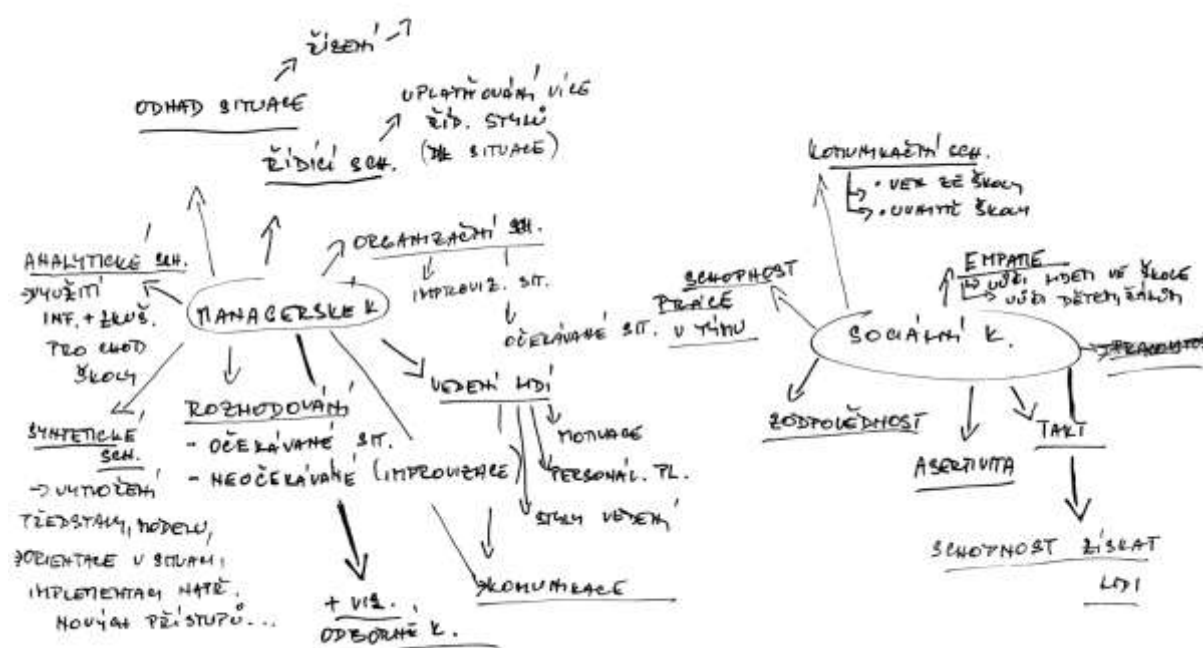 ŘÍZENÍ
ODHAD SITUACE
UPLATŇOVÁNÍ VÍCE
ŘÍD. STYLŮ
(DLE SITUACE)
ŘÍDÍCÍ SCH.
ORGANIZAČNÍ SCH.
IMPROVIZ. SIT.
OČEKÁVANÉ SIT.
ANALYTICKÉ SCH.
→ VYUŽITÍ
INF. + ZKUŠ.
PRO CHOD
ŠKOLY
MANAGERSKÉ K
SYNTETICKÉ
SCH.
→ VYTVOŘENÍ
PŘEDSTAVY, MODELU,
ORIENTACE V SITUACI,
IMPLEMENTACI NAPŘ.
NOVÝCH PŘÍSTUPŮ...
ROZHODOVÁNÍ
- OČEKÁVANÉ SIT.
- NEOČEKÁVANÉ (IMPROVIZACE)
+ VIZ.
ODBORNÉ K.
VEDENÍ LIDÍ
MOTIVACE
PERSONÁL. PL.
STYLY VEDENÍ
KOMUNIKACE
KOMUNIKAČNÍ SCH.
• VEN ZE ŠKOLY
• UVNITŘ ŠKOLY
SCHOPNOST
PRÁCE
V TÝMU
EMPATIE
VŮČI LIDEM VE ŠKOLE
VŮČI DĚTEM, ŽÁKŮM
SOCIÁLNÍ K.
ZODPOVĚDNOST
ASERTIVITA
TAKT
SCHOPNOST ZÍSKAT
LIDI